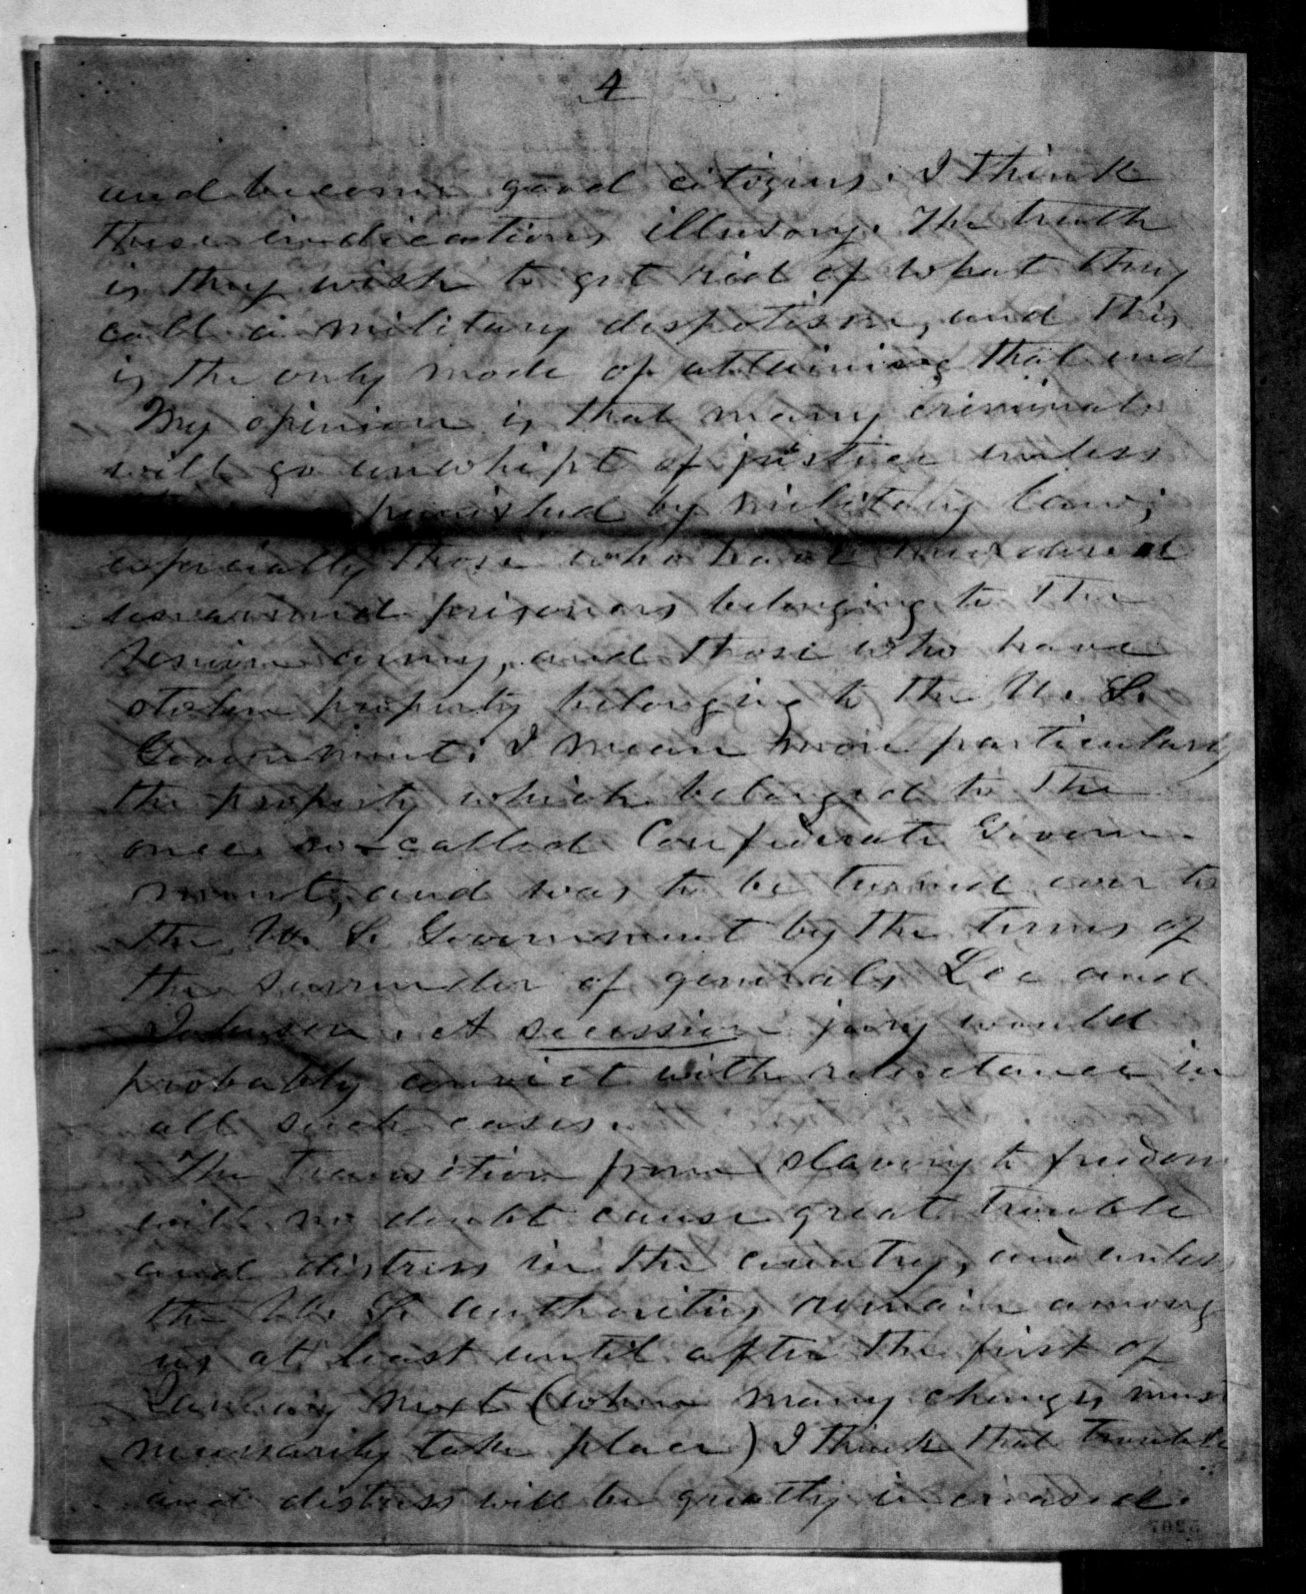 4
and become good citizens. I think
these indications illusory. The truth
is they wish to get rid of what they
call a military despotism, and this
is the only mode of attaining that end
My opinion is that many criminals
will go unwhipt of justice unless
punished by military law;
especially those who have murdered
unarmed prisoners belonging to the
Union army, and those who have
stolen property belonging to the U. S.
Government. I mean more particularly
the property which belonged to the
once so-called Confederate Govern-
ment, and was to be turned over to
the U. S. Government by the terms of
the surrender of generals Lee and
Johnson. A secession jury would
probably convict with reluctance in
all such cases.
The transition from slavery to freedom
will no doubt cause great trouble
and distress in the country, and unless
the U. S. authorities remain among
us at least until after the first of
January next (when many changes must
necessarily take place) I think that trouble
and distress will be greatly increased.